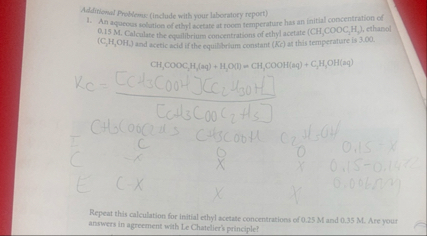 Additional Problems: (include with your laboratory report)
1. An aqueous solution of ethyl acetate at room temperature has an initial concentration of
0.15 M. Calculate the equilibrium concentrations of ethyl acetate (CH₃COOC₂H₅), ethanol
(C₂H₅OH,) and acetic acid if the equilibrium constant (Kc) at this temperature is 3.00.
CH₃COOC₂H₅(aq) + H₂O(l) ⇌ CH₃COOH(aq) + C₂H₅OH(aq)
Kc = [CH3COOH][C2H5OH]
[CH3COOC2H5]
CH3COOC2H5 CH3COOH C2H5OH
I C O O 0.15-x
C -x X X
E C-X X X
Repeat this calculation for initial ethyl acetate concentrations of 0.25 M and 0.35 M. Are your
answers in agreement with Le Chatelier's principle?